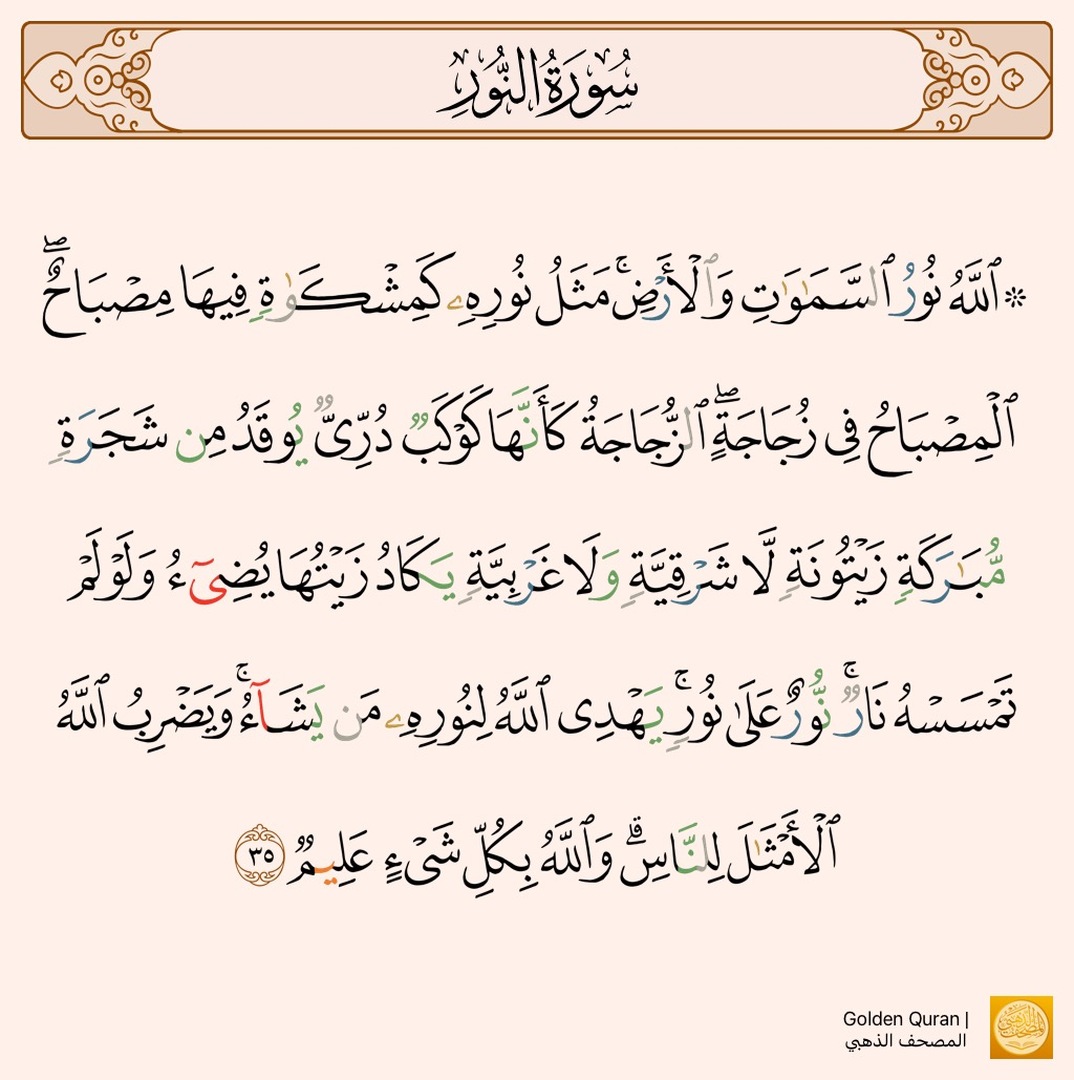 سُورَةُ النُّورِ
۞ ٱللَّهُ نُورُ ٱلسَّمَـٰوَٰتِ وَٱلْأَرْضِ ۚ مَثَلُ نُورِهِۦ كَمِشْكَوٰةٍ فِيهَا مِصْبَاحٌ ۖ
ٱلْمِصْبَاحُ فِى زُجَاجَةٍ ۖ ٱلزُّجَاجَةُ كَأَنَّهَا كَوْكَبٌ دُرِّىٌّ يُوقَدُ مِن شَجَرَةٍ
مُّبَـٰرَكَةٍ زَيْتُونَةٍ لَّا شَرْقِيَّةٍ وَلَا غَرْبِيَّةٍ يَكَادُ زَيْتُهَا يُضِىٓءُ وَلَوْ لَمْ
تَمْسَسْهُ نَارٌ ۚ نُّورٌ عَلَىٰ نُورٍ ۚ يَهْدِى ٱللَّهُ لِنُورِهِۦ مَن يَشَآءُ ۚ وَيَضْرِبُ ٱللَّهُ
ٱلْأَمْثَـٰلَ لِلنَّاسِ ۗ وَٱللَّهُ بِكُلِّ شَىْءٍ عَلِيمٌ ٣٥
Golden Quran |
المصحف الذهبي